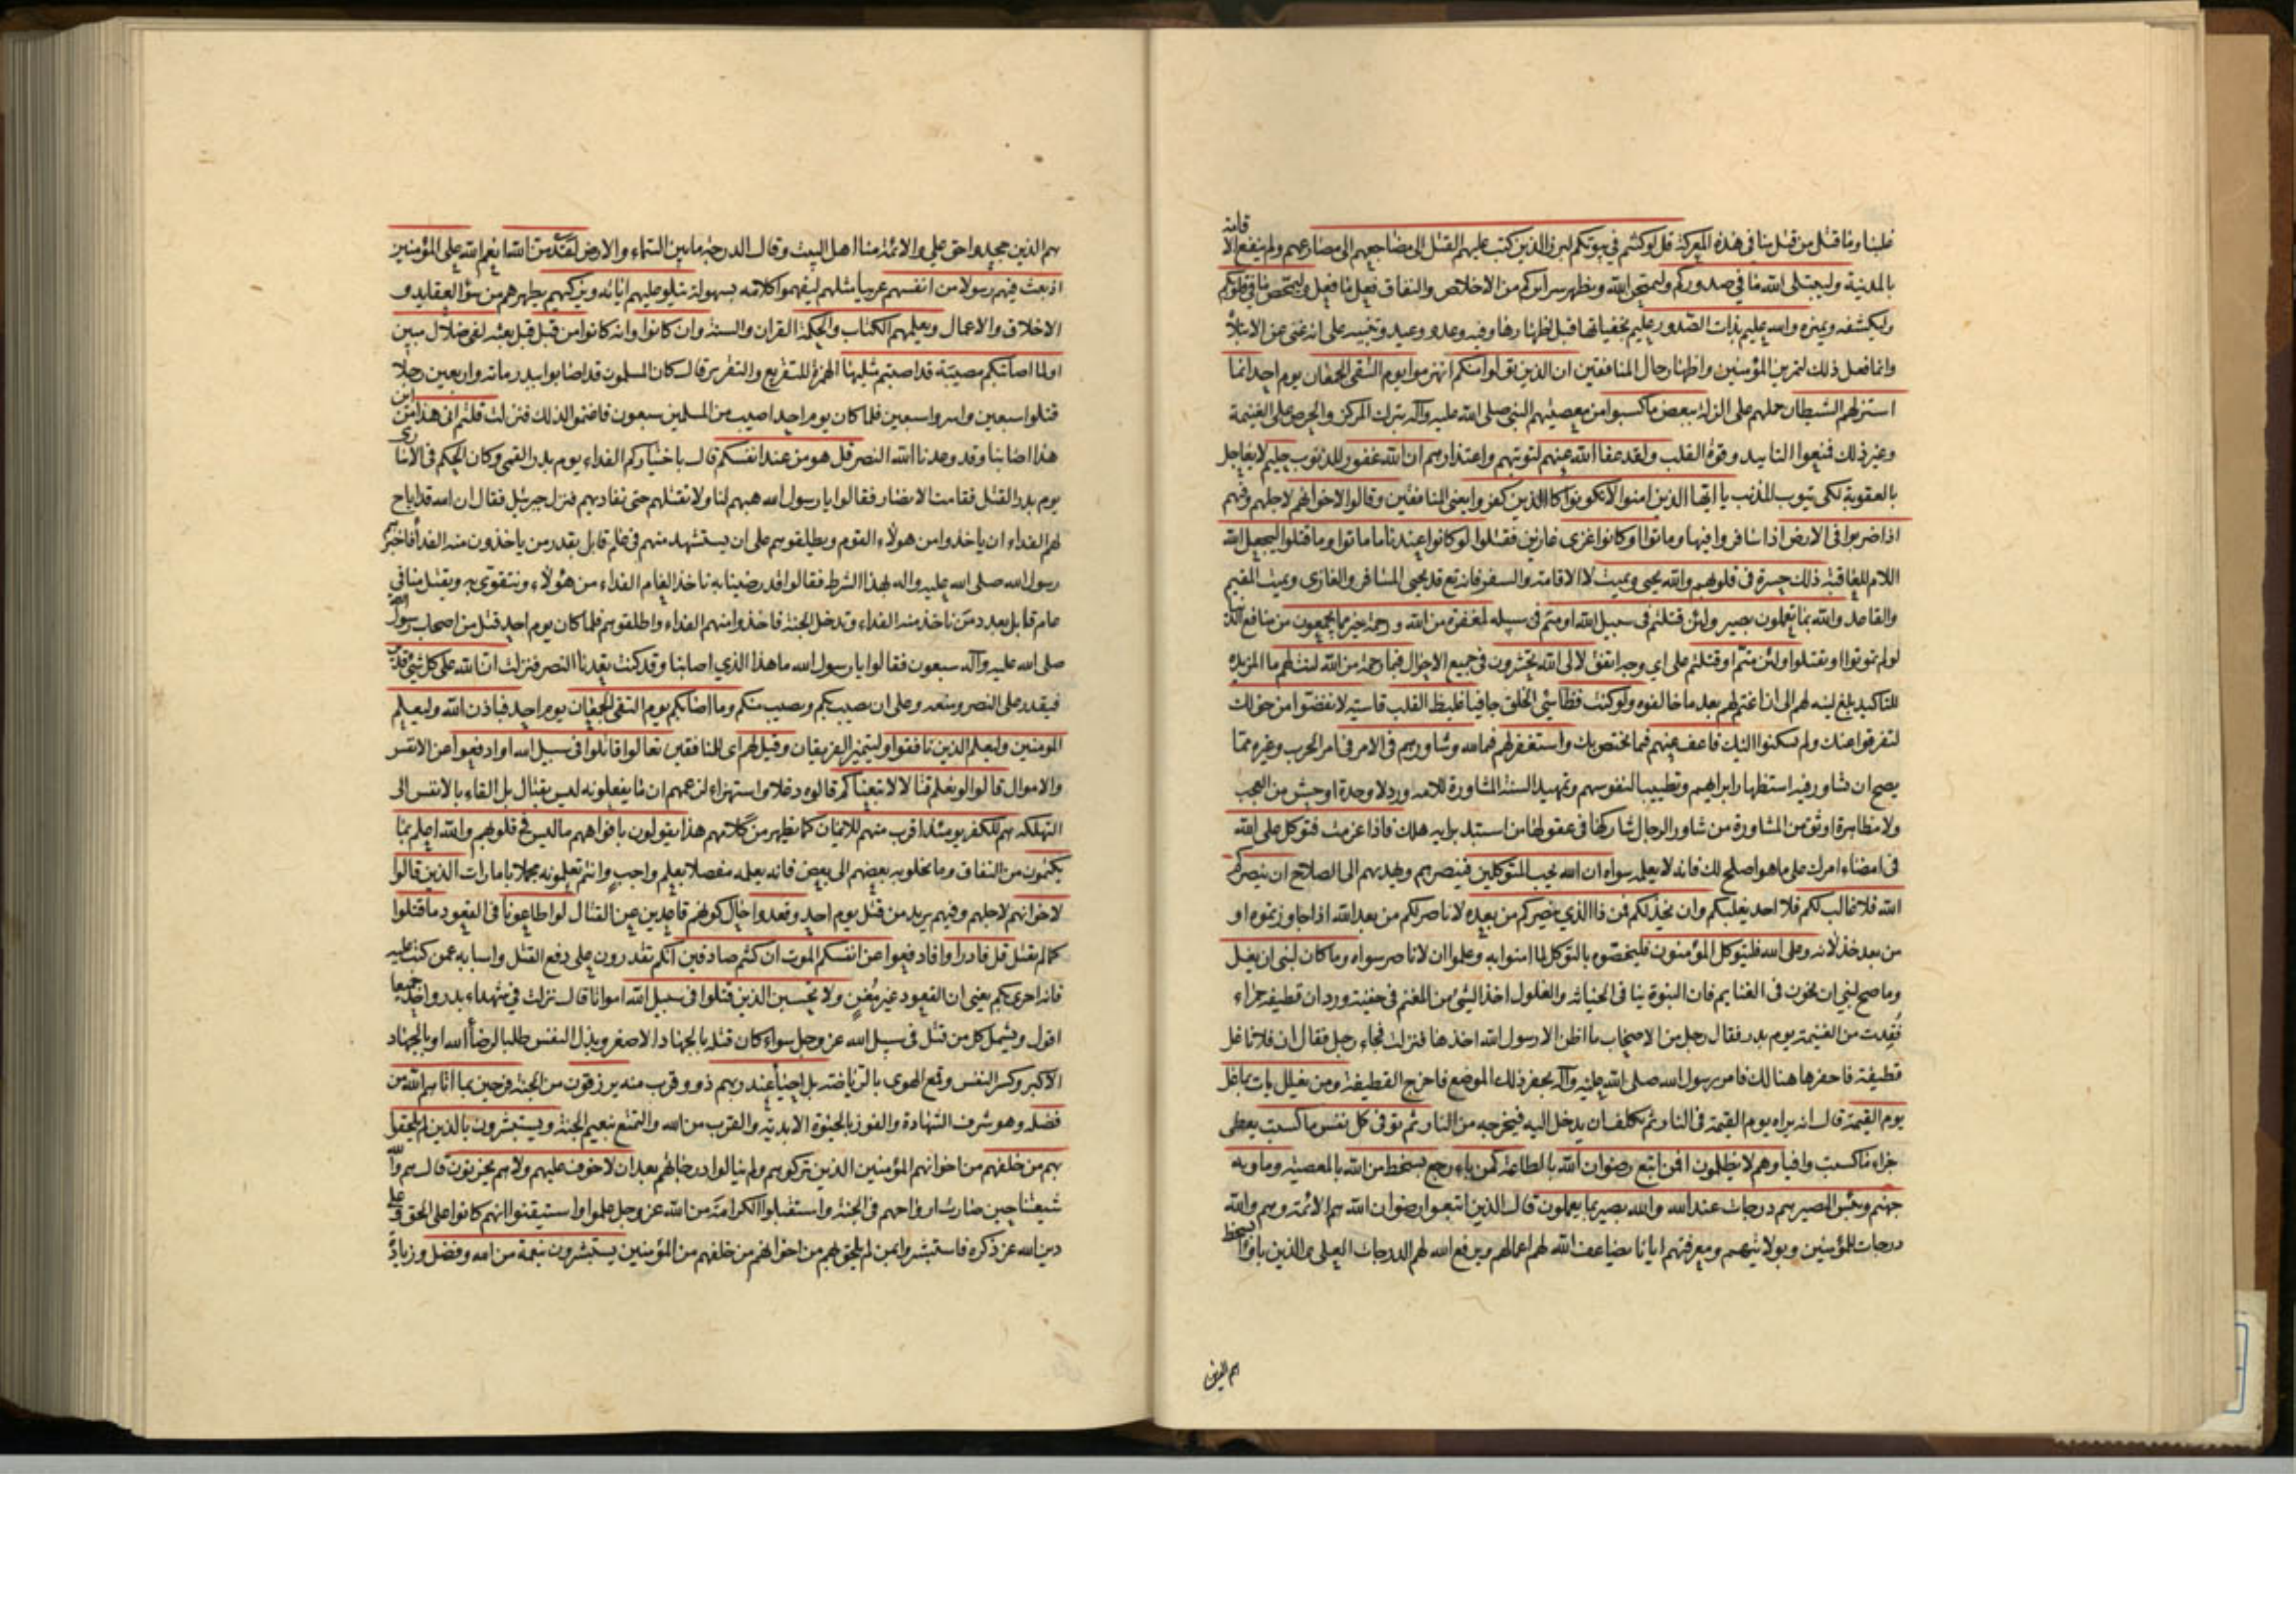 غلبنا وما قتل من قتل منا فى هذه المعركة قل لو كنتم فى بيوتكم لبرز الذين كتب عليهم القتل الى مضاجعهم الى مصارعهم ولم ينفع الاقامة
بالمدينة وليبتلى الله ما فى صدوركم وليمتحن الله ويظهر سرائركم من الاخلاص والنفاق فعل ما فعل وليمحص ما فى قلوبكم
وليكشفه ويميزه والله عليم بذات الصدور عليم بخفياتها قبل اظهارها وفيه وعد ووعيد وتنبيه على انه غنى عن الابتلاء
وانما فعل ذلك لتمرين المؤمنين واظهار حال المنافقين ان الذين تولوا منكم انهزموا يوم التقى الجمعان يوم احد انما
استزلهم الشيطان حملهم على الزلة ببعض ما كسبوا من معصيتهم النبى صلى الله عليه وآله بترك المركز والحرص على الغنيمة
وغير ذلك فمنعوا التاييد وقوة القلب ولقد عفا الله عنهم لتوبتهم واعتذارهم ان الله غفور للذنوب حليم لا يعاجل
بالعقوبة لكى يتوب المذنب يا ايها الذين امنوا لا تكونوا كالذين كفروا يعنى المنافقين وقالوا لاخوانهم لاجلهم وفيهم
اذا ضربوا فى الارض اذا سافروا فيها وماتوا او كانوا غزى غازين فقتلوا لو كانوا عندنا ما ماتوا وما قتلوا ليجعل الله
اللام للعاقبة ذلك حسرة فى قلوبهم والله يحيى ويميت لا الاقامة والسفر فانه تع قد يحيى المسافر والغازى ويميت المقيم
والقاعد والله بما تعملون بصير ولئن قتلتم فى سبيل الله او متم فى سبيله لمغفرة من الله ورحمة خير مما يجمعون من منافع الدنيا
لو لم تموتوا او تقتلوا ولئن متم او قتلتم على اى وجه اتفق لالى الله تحشرون فى جميع الاحوال فبما رحمة من الله لنت لهم ما المزيدة
للتاكيد بلغ لينه لهم الى ان اغتم لهم بعد ما خالفوه ولو كنت فظا سيئ الخلق جافيا غليظ القلب قاسيه لانفضوا من حولك
لتفرقوا عنك ولم يسكنوا اليك فاعف عنهم فيما يختص بك واستغفر لهم فيما لله وشاورهم فى الامر فى امر الحرب وغيره مما
يصح ان يشاور فيه استظهارا برايهم وتطييبا لنفوسهم وتمهيدا لسنة المشاورة للامة ورد لا وحدة اوحش من العجب
ولا مظاهرة اوثق من المشاورة من شاور الرجال شاركها فى عقولها من استبد برايه هلك فاذا عزمت فتوكل على الله
فى امضاء امرك على ما هو اصلح لك فانه لا يعلمه سواه ان الله يحب المتوكلين فينصرهم ويهديهم الى الصلاح ان ينصركم
الله فلا غالب لكم فلا احد يغلبكم وان يخذلكم فمن ذا الذى ينصركم من بعده لا ناصر لكم من بعد الله اذا جاوزتموه او
من بعد خذلانه وعلى الله فليتوكل المؤمنون فليخصوه بالتوكل لما امنوا به وعلموا ان لا ناصر سواه وما كان لنبى ان يغل
وما صح لنبى ان يخون فى الغنايم فان النبوة ينافى الخيانة والغلول اخذ الشئ من المغنم فى خفية ورد ان قطيفة حمراء
فقدت من الغنيمة يوم بدر فقال رجل من الاصحاب ما اظن الا رسول الله اخذها فنزلت فجاء رجل فقال ان فلانا غل
قطيفة فاحفرها هنالك فامر رسول الله صلى الله عليه وآله بحفر ذلك الموضع فاخرج القطيفة ومن يغلل يات بما غل
يوم القيمة قال انه يراه يوم القيمة فى النار ثم يكلف ان يدخل اليه فيخرجه من النار ثم توفى كل نفس ما كسبت يعطى
جزاء ما كسبت وافيا وهم لا يظلمون افمن اتبع رضوان الله بالطاعة كمن باء رجع بسخط من الله بالمعصية وماويه
جهنم وبئس المصير هم درجات عند الله والله بصير بما يعملون قال الذين اتبعوا رضوان الله هم الائمة وهم والله
درجات للمؤمنين وبولايتهم ومعرفتهم ايانا يضاعف الله لهم اعمالهم ويرفع الله لهم الدرجات العلى والذين باؤا بسخط
هم الذين جحدوا حق على والائمة منا اهل البيت وقال الدرجة ما بين السماء والارض لقد من الله انعم الله على المؤمنين
اذ بعث فيهم رسولا من انفسهم عربيا مثلهم ليفهموا كلامه بسهولة يتلو عليهم اياته ويزكيهم يطهرهم من سؤ العقايد و
الاخلاق والاعمال ويعلمهم الكتاب والحكمة القران والسنة وان كانوا وانه كانوا من قبل قبل بعثه لفى ضلال مبين
او لما اصابتكم مصيبة قد اصبتم مثليها الهمزة للتقريع والتقرير قال كان المسلمون قد اصابوا ببدر مائة واربعين رجلا
قتلوا سبعين واسروا سبعين فلما كان يوم احد اصيب من المسلمين سبعون فاغتموا لذلك فنزلت قلتم انى هذا من اين
هذا اصابنا وقد وعدنا الله النصر قل هو من عند انفسكم قال باختياركم الفداء يوم بدر القمى وكان الحكم فى الاسارى
يوم بدر القتل فقامت الانصار فقالوا يا رسول الله هبهم لنا ولا تقتلهم حتى نفاديهم فنزل جبرئيل فقال ان الله قد اباح
لهم الفداء ان ياخذوا من هولاء القوم ويطلقوهم على ان يستشهد منهم فى عام قابل بقدر من ياخذون منه الفداء فاخبرهم
رسول الله صلى الله عليه واله بهذا الشرط فقالوا قد رضينا به ناخذ العام الفداء من هؤلاء ونتقوى به ويقتل منا فى
عام قابل بعدد من ناخذ منه الفداء وندخل الجنة فاخذوا منهم الفداء واطلقوهم فلما كان يوم احد قتل من اصحاب رسول الله
صلى الله عليه وآله سبعون فقالوا يا رسول الله ما هذا الذى اصابنا وقد كنت تعدنا النصر فنزلت ان الله على كل شئ قدير
فيقدر على النصر ومنعه وعلى ان يصيب بكم ويصيب منكم وما اصابكم يوم التقى الجمعان يوم احد فباذن الله وليعلم
المومنين وليعلم الذين نافقوا وليتميز الفريقان وقيل لهم اى للمنافقين تعالوا قاتلوا فى سبيل الله او ادفعوا عن الانفس
والاموال قالوا لو نعلم قتالا لاتبعناكم قالوه دغلا واستهزاء لزعمهم ان ما يفعلونه ليس بقتال بل القاء بالانفس الى
التهلكة هم للكفر يومئذ اقرب منهم للايمان كما يظهر من كلامهم هذا يقولون بافواههم ما ليس فى قلوبهم والله اعلم بما
يكتمون من النفاق وما يخلو به بعضهم الى بعض فانه يعلمه مفصلا بعلم واجب وانتم تعلمونه مجملا بامارات الذين قالوا
لاخوانهم لاجلهم وفيهم يريد من قتل يوم احد وقعدوا حال كونهم قاعدين عن القتال لو اطاعونا فى القعود ما قتلوا
كما لم نقتل قل فادرأوا فادفعوا عن انفسكم الموت ان كنتم صادقين انكم تقدرون على دفع القتل واسبابه عمن كتب عليه
فانه احرى بكم يعنى ان القعود غير مغن ولا تحسبن الذين قتلوا فى سبيل الله امواتا قال نزلت فى شهداء بدر واحد جميعا
اقول ويشمل كل من قتل فى سبيل الله عز وجل سواء كان قتله بالجهاد الاصغر وبذل النفس طلبا لرضا الله او بالجهاد
الاكبر وكسر النفس وقمع الهوى بالرياضة بل احياء عند ربهم ذوو قرب منه يرزقون من الجنة فرحين بما اتاهم الله من
فضله وهو شرف الشهادة والفوز بالحيوة الابدية والقرب من الله والتمتع بنعيم الجنة ويستبشرون بالذين لم يلحقوا
بهم من خلفهم من اخوانهم المؤمنين الذين تركوهم ولم ينالوا درجاتهم بعد ان لا خوف عليهم ولا هم يحزنون قال هم والله
شيعتنا حين صارت ارواحهم فى الجنة واستقبلوا الكرامة من الله عز وجل علموا واستيقنوا انهم كانوا على الحق وعلى
دين الله عز ذكره فاستبشروا بمن لم يلحق بهم من اخوانهم من خلفهم من المؤمنين يستبشرون بنعمة من الله وفضل وزيادة
هم الذين